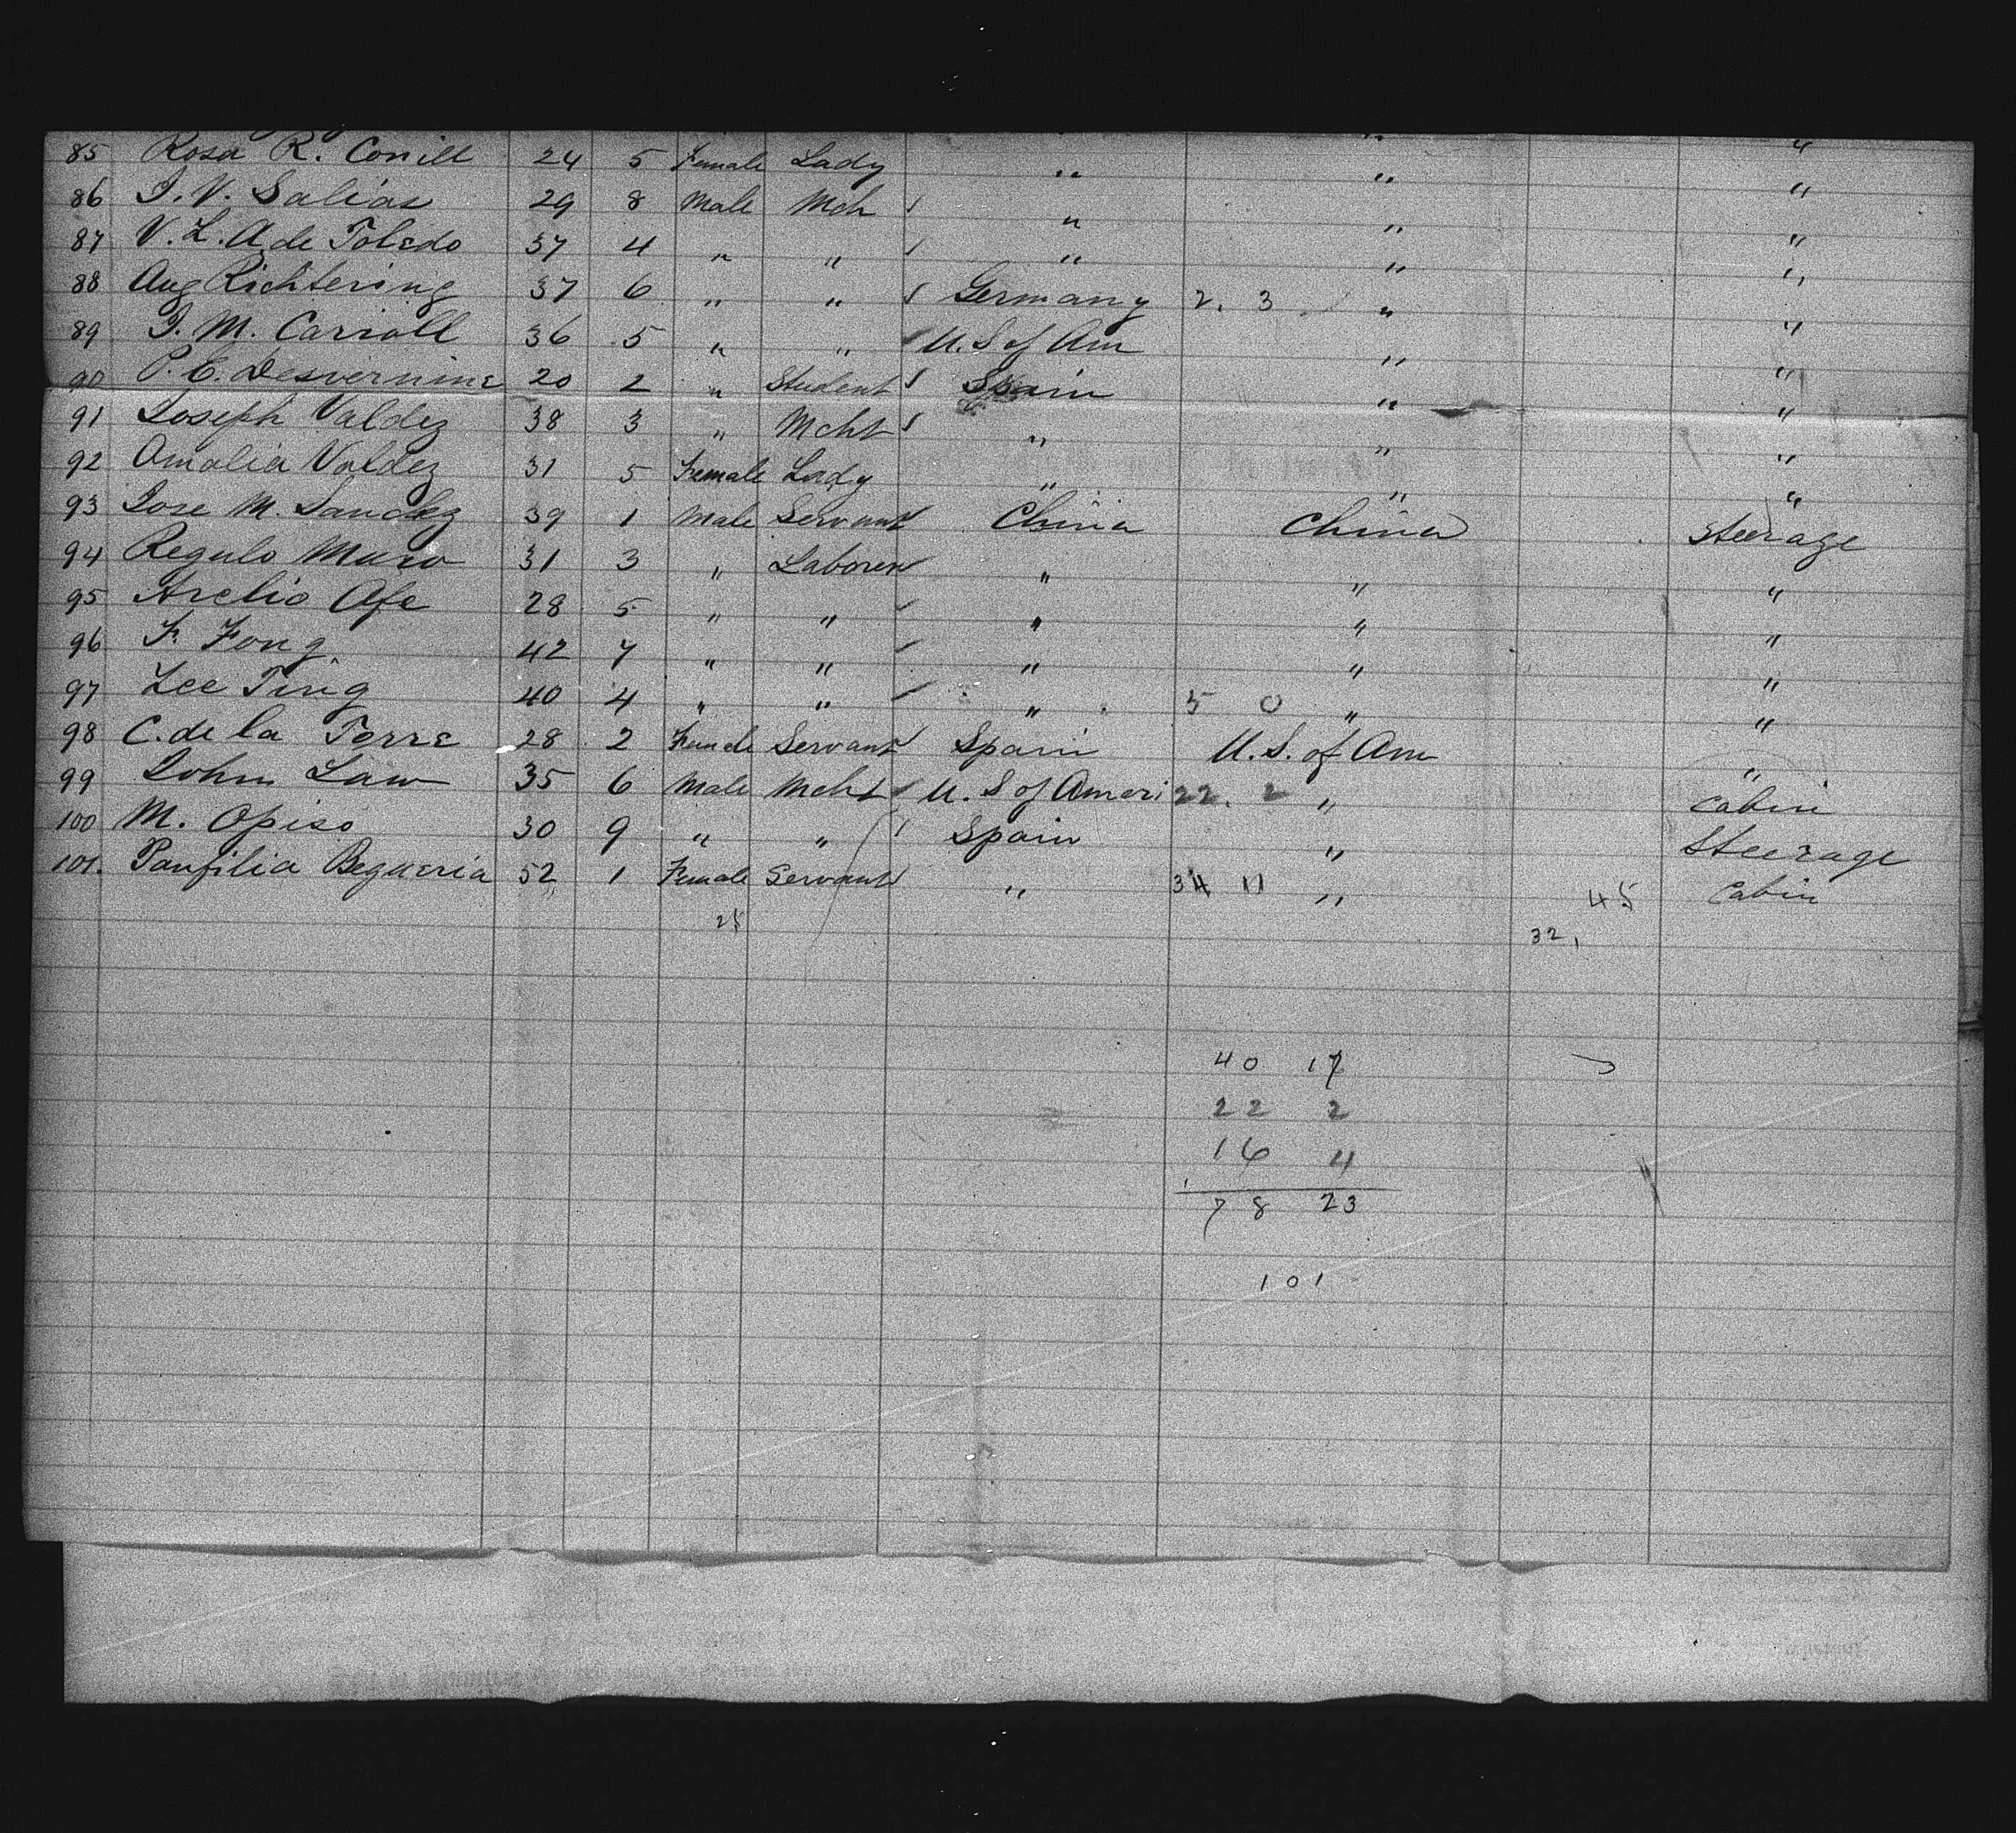 85 Rosa R. Conill 24 5 Female Lady " " "
86 J. V. Salias 29 8 Male Mch " " "
87 V. L. A de Toledo 37 4 " " " " "
88 Aug Richtering 37 6 " " Germany 2. 3 " "
89 J. M. Carroll 36 5 " " U.S of Am " "
90 P. E. Desvernine 20 2 " Student Spain " "
91 Joseph Valdez 38 3 " Mcht " " "
92 Amalia Valdez 31 5 Female Lady " " "
93 Jose M. Sanchez 39 1 Male Servant China China Steerage
94 Regulo Muro 31 3 " Laborer " " "
95 Arelio Afe 28 5 " " " " "
96 F. Fong 42 7 " " " " "
97 Lee Ting 40 4 " " " 5 0 " "
98 C. de la Torre 28 2 Female Servant Spain U.S. of Am "
99 John Law 35 6 Male Mcht U.S of Ameri 22. 2 " Cabin
100 M. Opiso 30 9 " " Spain " Steerage
101. Panfilia Begueria 52 1 Female Servant " 34 11 " 45 Cabin
25 32,
40 17
22 2
16 4
78 23
101